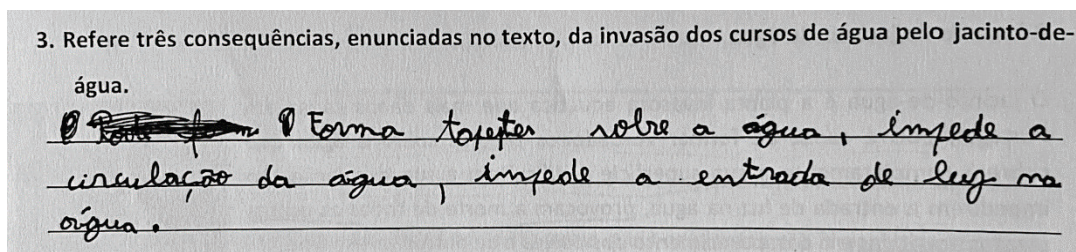 3. Refere três consequências, enunciadas no texto, da invasão dos cursos de água pelo jacinto-de-
água.
Forma tapetes sobre a água, impede a
circulação da água, impede a entrada de luz na
água.